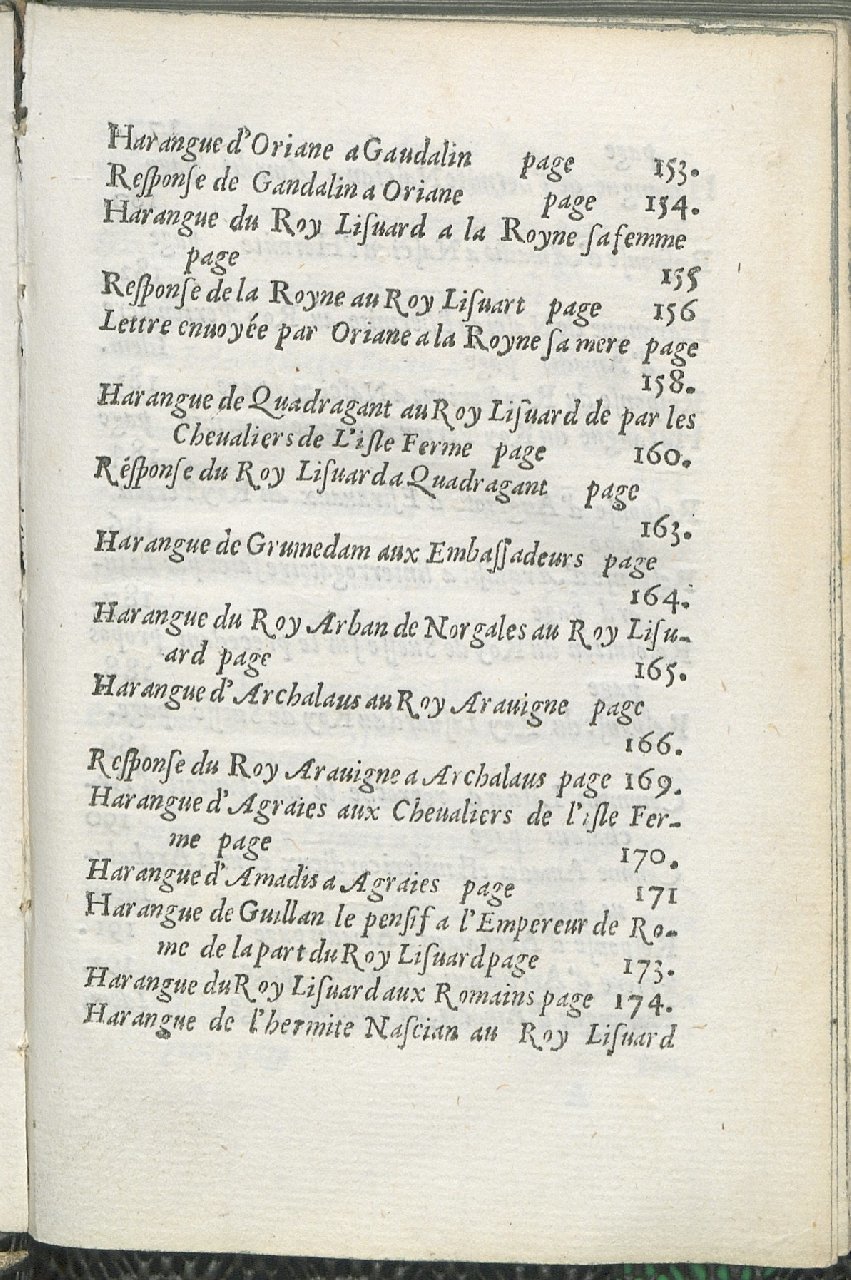 Harangue d'Oriane a Gaudalin page 153.
Reſponſe de Gandalin a Oriane page 154.
Harangue du Roy Liſuard a la Royne ſa femme
page 155
Reſponſe de la Royne au Roy Liſuart page 156
Lettre enuoyée par Oriane a la Royne ſa mere page
158.
Harangue de Quadragant au Roy Liſuard de par les
Cheualiers de L'iſle Ferme page 160.
Réſponſe du Roy Liſuard a Quadragant page
163.
Harangue de Grumedam aux Embaſſadeurs page
164.
Harangue du Roy Arban de Norgales au Roy Liſu-
ard page 165.
Harangue d'Archalaus au Roy Arauigne page
166.
Reſponſe du Roy Arauigne a Archalaus page 169.
Harangue d'Agraies aux Cheualiers de l'iſle Fer-
me page 170.
Harangue d'Amadis a Agraies page 171
Harangue de Guillan le penſif a l'Empereur de Ro-
me de la part du Roy Liſuard page 173.
Harangue du Roy Liſuard aux Romains page 174.
Harangue de l'hermite Naſcian au Roy Liſuard